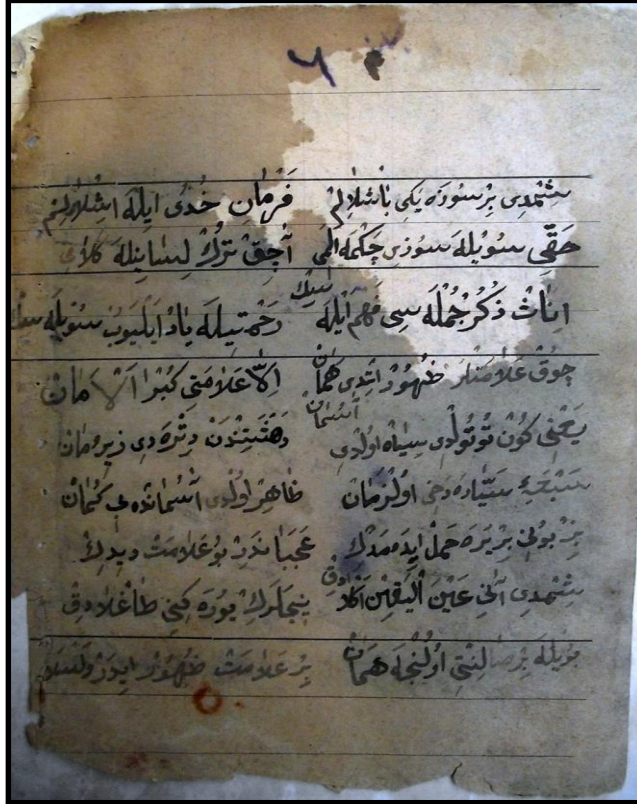 ٦
شمدی بر سوزه یکی باشلالم فرمان خدی ایله اشلارلیم
حقی سویله سوزی چکمه المی آچق ترك لسانیله کلامی
اناث ذکر جمله سی فهم ایله سنك رحمتیله یاد ایلیوب سویله
چوق علامتلر ظهور ایتدی همان الا علامتی کبرا الامان
یعنی کون توتولدی سیاه اولدی آسمان دهشتندن دتره دی زیر ومان
سبعهٔ سیاره دخی اولزمان ظاهر اولدی آسمانده بی کمان
بز بونی بر یره حمل ایده مدك عجبا ندر بو علامت دیدك
شمدی آنی عین الیقین اکلادق نیجلرك یوره کنی طاغلادق
بویله بر صالنتی اولنجه همان بر علامت ظهور ایدر